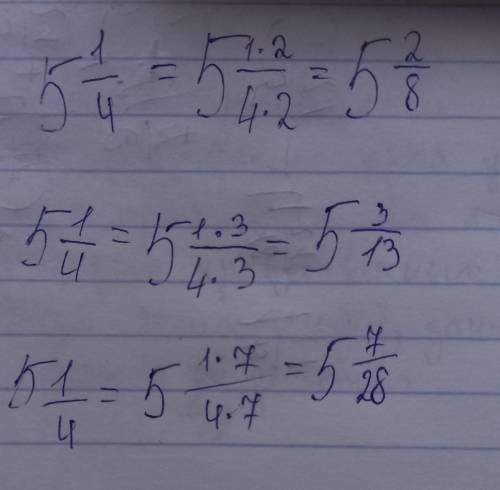 5 1/4 = 5 1·2/4·2 = 5 2/8
5 1/4 = 5 1·3/4·3 = 5 3/13
5 1/4 = 5 1·7/4·7 = 5 7/28